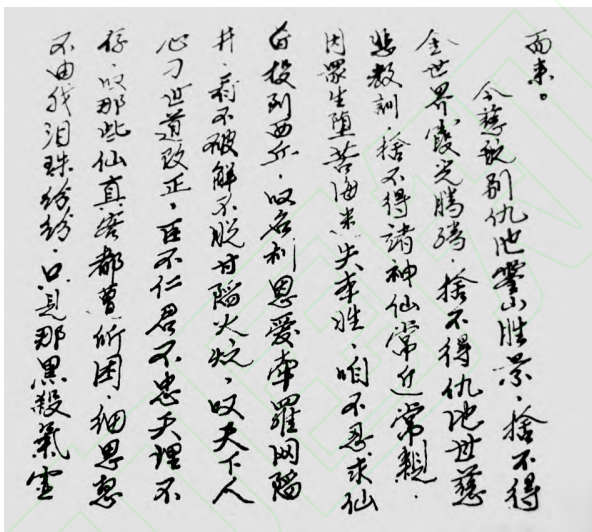 而来。
今慈航别仇池蓥山胜景，捨不得
金世界霞光腾腾，捨不得仇池世慈
悲教訓，捨不得諸神仙常近常親，
因眾生堕苦海迷失本性，咱不忍求仙
自投到西丘，叹名利恩爱牵羅网陷
井，若不破解不脱村陷火炕，叹天下人
心刁世道改正，臣不仁君不忠天理不
存，叹那些仙真容都曹所困，细思想
不由我泪珠纷纷，只見那黑殺氣空